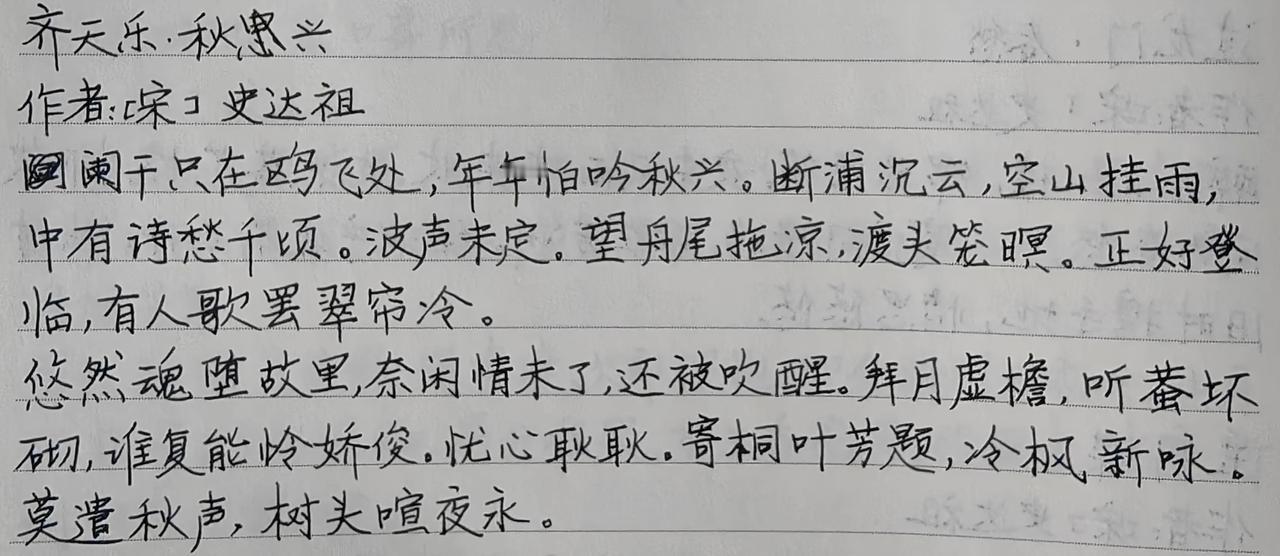 齐天乐·秋兴
作者:[宋]史达祖
阑干只在鸥飞处,年年怕吟秋兴。断浦沉云,空山挂雨,
中有诗愁千顷。波声未定。望舟尾拖凉,渡头笼暝。正好登
临,有人歌罢翠帘冷。
悠然魂堕故里,奈闲情未了,还被吹醒。拜月虚檐,听蛩坏
砌,谁复能怜娇俊。忧心耿耿。寄桐叶芳题,冷枫新咏。
莫遣秋声,树头喧夜永。